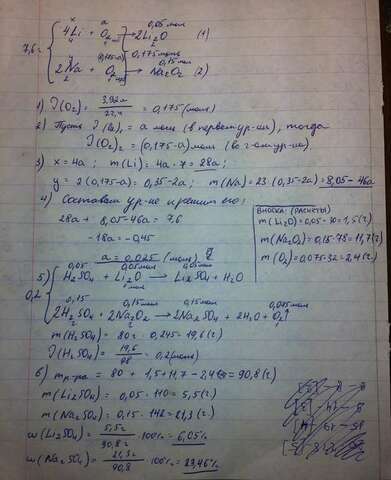 x a 0,05 моль
4Li + O2 → 2Li2O (1)
7,6г
(0,175-a) 0,175 моль 0,15 моль
2Na + O2 → Na2O2 (2)
1) ν(O2) = 3,92 л / 22,4 = 0,175 (моль)
2) Пусть ν(O2)1 = a моль (в первом ур-ии), тогда
ν(O2)2 = (0,175-a) моль (во 2-ом ур-ии).
3) x = 4a; m(Li) = 4a · 7 = 28a;
y = 2(0,175-a) = 0,35-2a; m(Na) = 23·(0,35-2a) = 8,05-46a
4) Составим ур-ие и решим его:
28a + 8,05-46a = 7,6
-18a = -0,45
a = 0,025 (моль)
ВНОСКА: (РАСЧЕТЫ)
m(Li2O) = 0,05·30 = 1,5 (г)
m(Na2O2) = 0,15·78 = 11,7 (г)
m(O2) = 0,075·32 = 2,4 (г)
0,05 0,05моль 0,05моль
5) H2SO4 + Li2O → Li2SO4 + H2O
0,2
0,15 0,15моль 0,15моль 0,075моль
2H2SO4 + 2Na2O2 → 2Na2SO4 + 2H2O + O2↑
m(H2SO4) = 80г · 0,245 = 19,6 (г)
ν(H2SO4) = 19,6 / 98 = 0,2 (моль)
6) mр-ра = 80 + 1,5 + 11,7 - 2,4 = 90,8 (г)
m(Li2SO4) = 0,05 · 110 = 5,5 (г)
m(Na2SO4) = 0,15 · 142 = 21,3 (г)
ω(Li2SO4) = 5,5г / 90,8г · 100% = 6,05%
ω(Na2SO4) = 21,3 / 90,8 · 100% = 23,46%